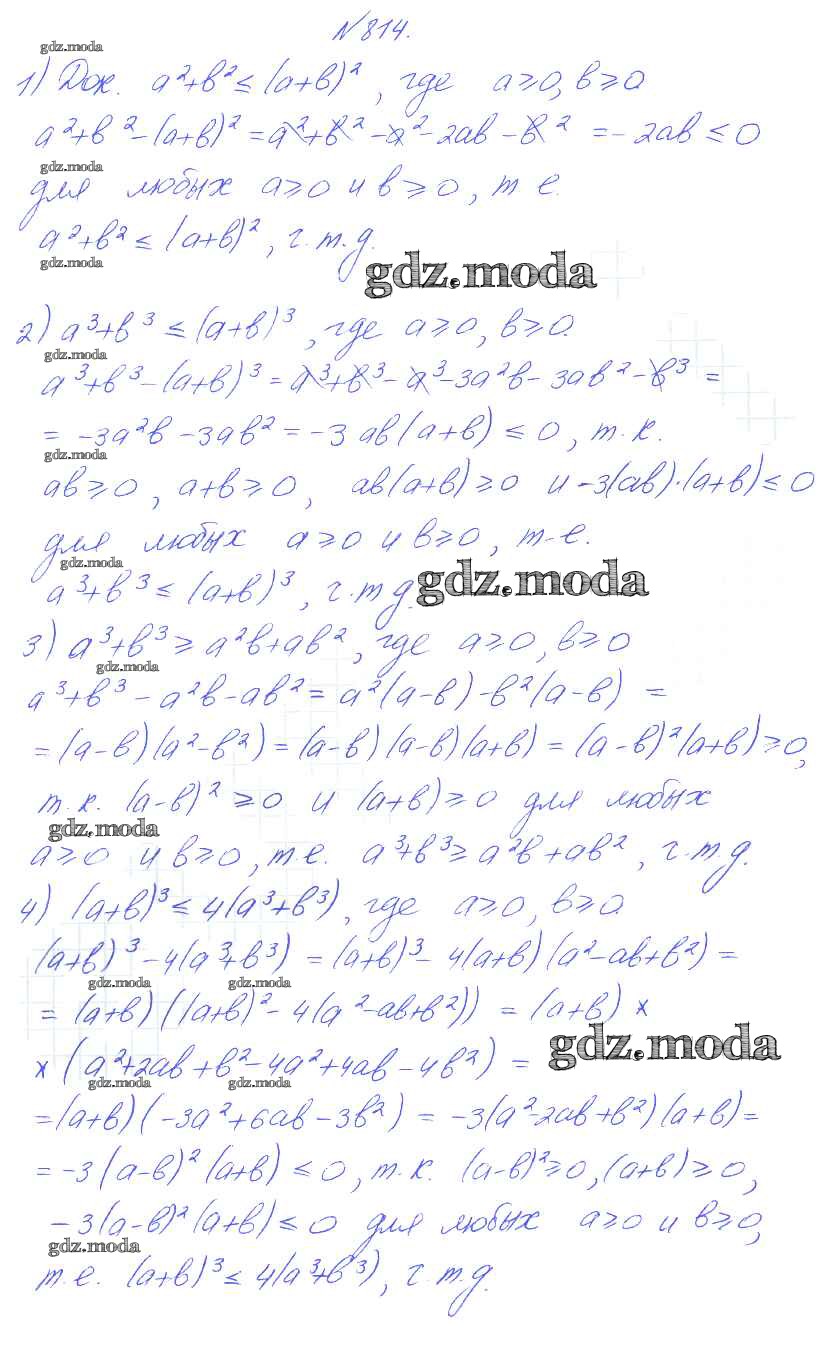 №814.
gdz.moda
1) Док. a²+b² ≤ (a+b)², где a≥0, b≥0
a²+b²-(a+b)² = a²+b²-a²-2ab-b² = -2ab ≤ 0
gdz.moda
для любых a≥0 и b≥0, т е.
a²+b² ≤ (a+b)², ч.т.д.
gdz.moda
gdz.moda
2) a³+b³ ≤ (a+b)³, где a≥0, b≥0.
gdz.moda
a³+b³-(a+b)³ = a³+b³-a³-3a²b-3ab²-b³ =
= -3a²b-3ab² = -3ab(a+b) ≤ 0, т.к.
gdz.moda
ab≥0, a+b≥0, ab(a+b)≥0 и -3(ab)·(a+b)≤0
для любых a≥0 и b≥0, т-е.
gdz.moda
a³+b³ ≤ (a+b)³, ч.т д.
gdz.moda
3) a³+b³ ≥ a²b+ab², где a≥0, b≥0
gdz.moda
a³+b³-a²b-ab² = a²(a-b)-b²(a-b) =
= (a-b)(a²-b²) = (a-b)(a-b)(a+b) = (a-b)²(a+b)≥0,
т.к. (a-b)² ≥0 и (a+b)≥0 для любых
gdz.moda
a≥0 и b≥0, т.е. a³+b³≥a²b+ab², ч.т.д.
4) (a+b)³ ≤ 4(a³+b³), где a≥0, b≥0
(a+b)³-4(a³+b³) = (a+b)³-4(a+b)(a²-ab+b²) =
gdz.moda gdz.moda
= (a+b)((a+b)²-4(a²-ab+b²)) = (a+b) ×
gdz.moda
× (a²+2ab+b²-4a²+4ab-4b²) =
gdz.moda gdz.moda
= (a+b)(-3a²+6ab-3b²) = -3(a²-2ab+b²)(a+b) =
= -3(a-b)²(a+b) ≤ 0, т.к. (a-b)²≥0, (a+b)≥0,
-3(a-b)²(a+b)≤0 для любых a≥0 и b≥0,
gdz.moda
т.е. (a+b)³ ≤ 4(a³+b³), ч.т.д.